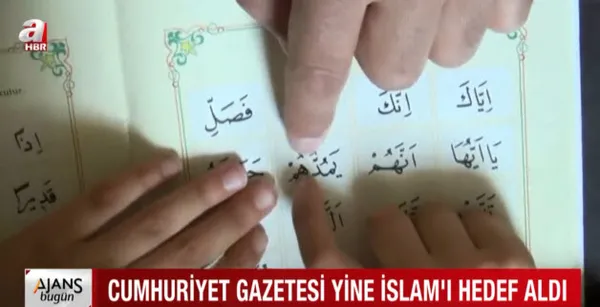 a
HBR
اِيَّاكَ اِنَّكَ فَصَلِّ
يَا اَيُّهَا اَنَّهُمْ يَمُدُّهُمْ
اِذًا
قَدِيرًا
AJANS
bugün
CUMHURİYET GAZETESİ YİNE İSLAM'I HEDEF ALDI